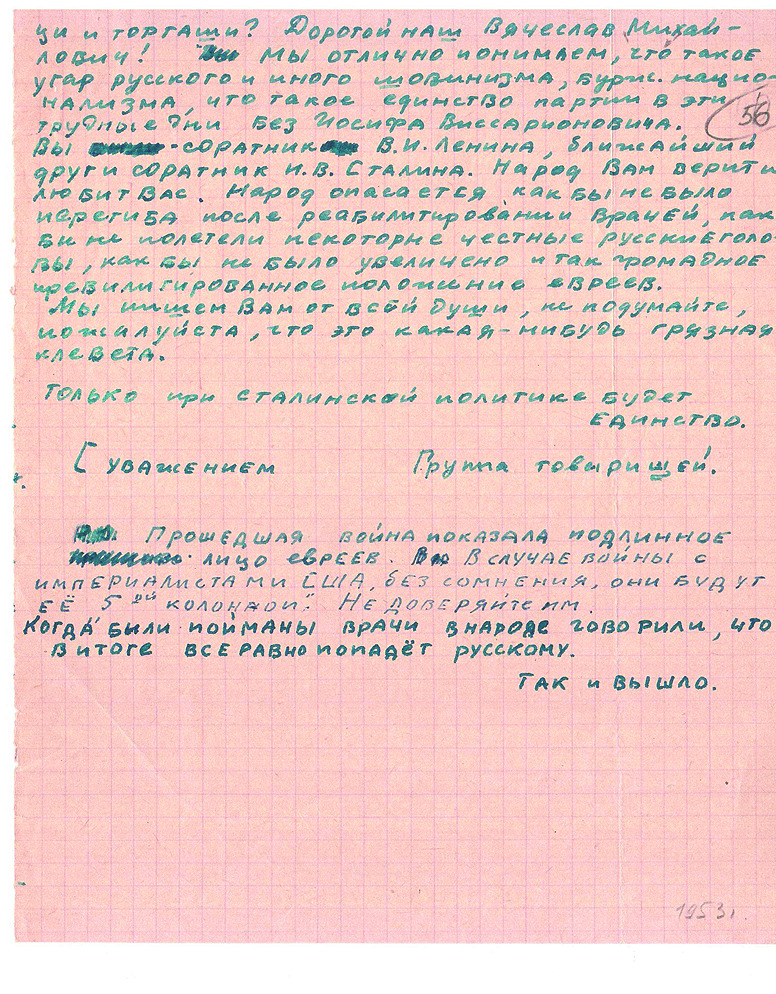 ци и торгаши? Дорогой наш Вячеслав Михай-
лович! Мы отлично понимаем, что такое
угар русского и иного шовинизма, бурж. нацио-
нализма, что такое единство партии в эти
56
трудные дни без Иосифа Виссарионовича.
Вы -соратник В.И. Ленина, ближайший
друг и соратник И.В. Сталина. Народ Вам верит и
любит Вас. Народ опасается как бы не было
перегиба после реабилитирования врачей, как
бы не полетели некоторые честные русские голо-
вы, как бы не было увеличено и так громадное
превилигированное положение евреев.
Мы пишем Вам от всей души, не подумайте,
пожалуйста, что это какая-нибудь грязная
клевета.
Только при сталинской политике будет
единство.
С уважением Группа товарищей.
Прошедшая война показала подлинное
лицо евреев. В случае войны с
империалистами США, без сомнения, они будут
её 5ой колонной. Не доверяйте им.
Когда были пойманы врачи в народе говорили, что
в итоге всё равно попадёт русскому.
Так и вышло.
1953г.